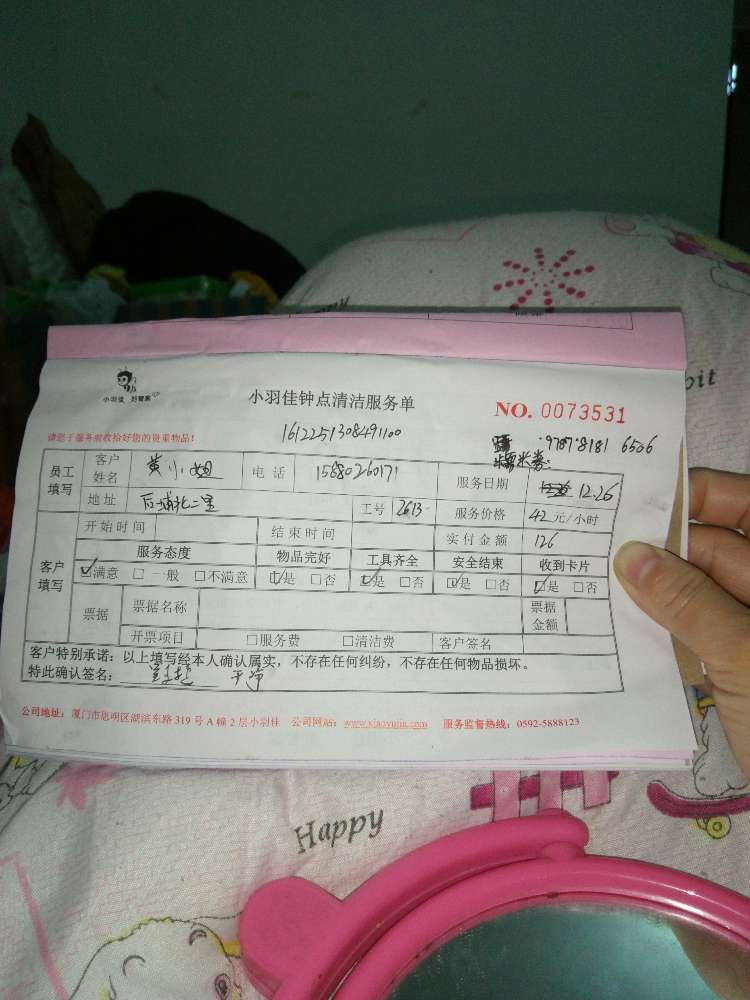 小羽佳 好管家
小羽佳钟点清洁服务单
NO. 0073531
请您于服务前收拾好您的贵重物品!
1612251308491100
9787 8181 6506
员工填写 客户姓名 黄小姐 电话 15880260171 服务日期 12.26
地址 后埔北二里 工号 2613 服务价格 42 元/小时
客户填写 开始时间 结束时间 实付金额 126
服务态度 物品完好 工具齐全 安全结束 收到卡片
☑满意 □一般 □不满意 ☑是 □否 ☑是 □否 ☑是 □否 ☑是 □否
票据 票据名称 票据金额
开票项目 □服务费 □清洁费 客户签名
客户特别承诺:以上填写经本人确认属实,不存在任何纠纷,不存在任何物品损坏。
特此确认签名: 干净
公司地址:厦门市思明区湖滨东路 319 号 A 幢 2 层小羽佳 公司网站:www.xiaoyujia.com 服务监督热线:0592-5888123
Happy